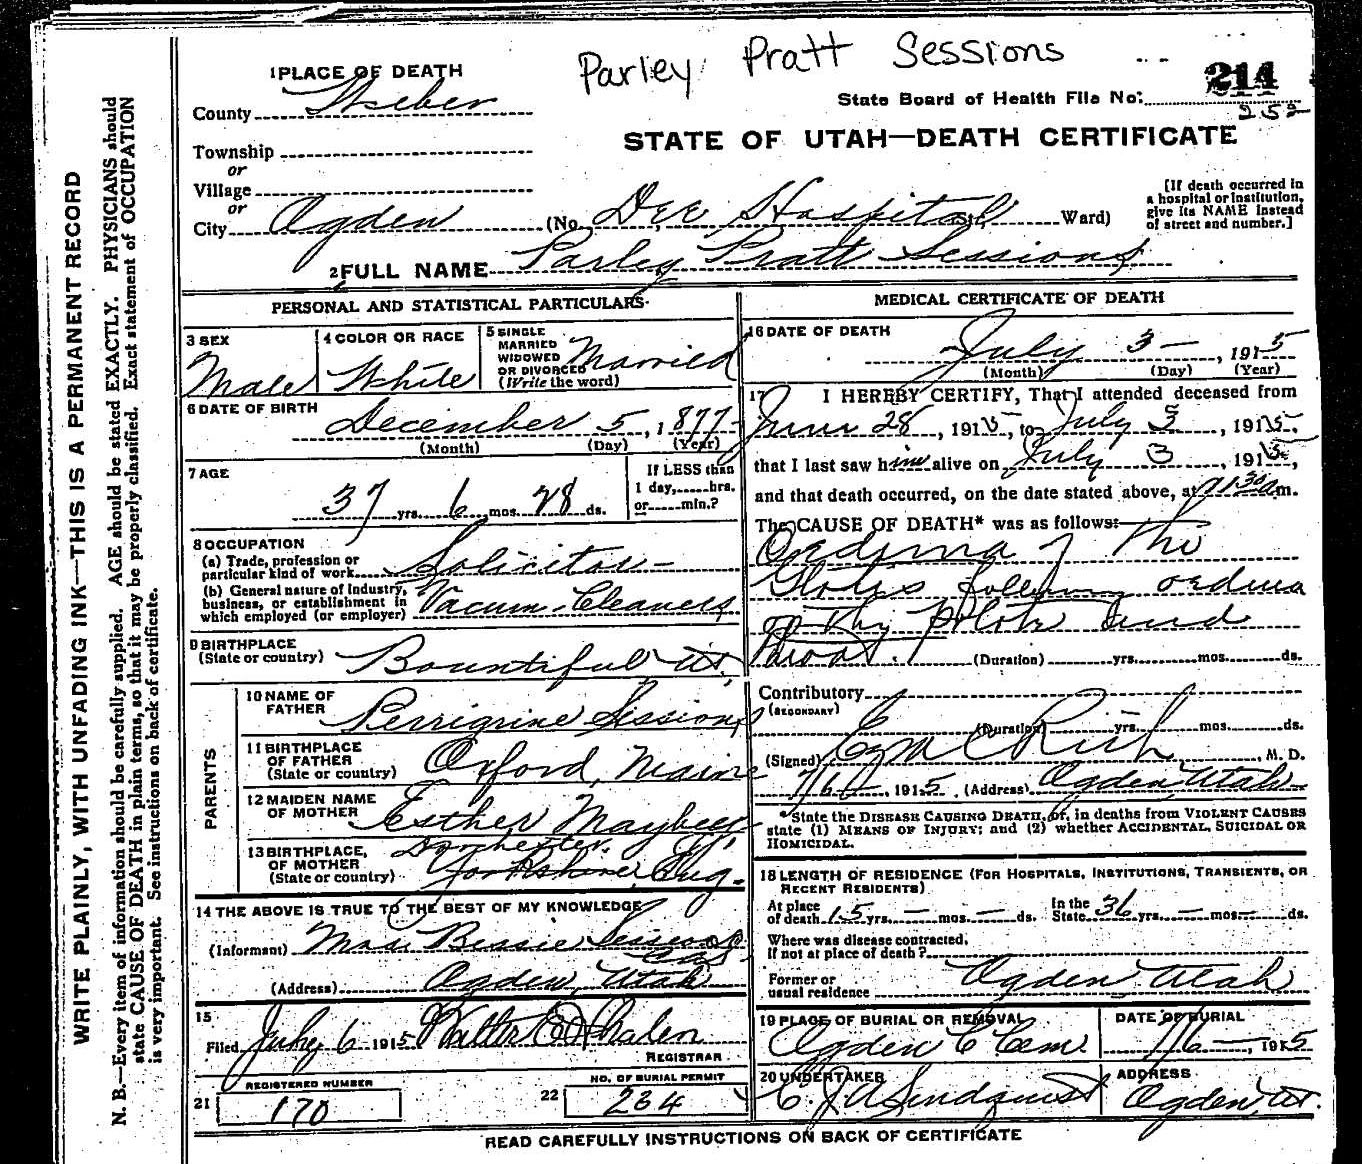 Parley Pratt Sessions
1 PLACE OF DEATH
County Weber
Township
or
Village
or
City Ogden (No. Dee Hospital, Ward)
214
State Board of Health File No.
252
STATE OF UTAH—DEATH CERTIFICATE
[If death occurred in
a hospital or institution,
give its NAME instead
of street and number.]
2 FULL NAME Parley Pratt Sessions
PERSONAL AND STATISTICAL PARTICULARS
3 SEX
Male
4 COLOR OR RACE
White
5 SINGLE
MARRIED
WIDOWED
OR DIVORCED
(Write the word)
Married
6 DATE OF BIRTH
December 5, 1877
(Month) (Day) (Year)
7 AGE
37 yrs. 6 mos. 28 ds.
If LESS than
1 day,......hrs.
or......min.?
8 OCCUPATION
(a) Trade, profession or
particular kind of work Solicitor
(b) General nature of industry,
business, or establishment in
which employed (or employer) Vacum Cleaners
9 BIRTHPLACE
(State or country) Bountiful Ut.
PARENTS
10 NAME OF
FATHER Perrigrine Sessions
11 BIRTHPLACE
OF FATHER
(State or country) Oxford, Maine
12 MAIDEN NAME
OF MOTHER Esther Maybeey
13 BIRTHPLACE,
OF MOTHER
(State or country)
Dorchester,
Yorkshire, Eng.
14 THE ABOVE IS TRUE TO THE BEST OF MY KNOWLEDGE
(Informant) Mrs. Bessie Sessions
(Address) Ogden, Utah
15
Filed July 6 1915 Walter
REGISTRAR
REGISTERED NUMBER
21 170
NO. OF BURIAL PERMIT
22 234
MEDICAL CERTIFICATE OF DEATH
16 DATE OF DEATH
July 3 , 1915
(Month) (Day) (Year)
17 I HEREBY CERTIFY, That I attended deceased from
June 28, 1915, to July 3, 1915,
that I last saw him alive on July 3, 1915,
and that death occurred, on the date stated above, at m.
The CAUSE OF DEATH* was as follows:
Oedema of the
Glotis following oedema
of the and
throat. (Duration) yrs. mos. ds.
Contributory
(SECONDARY)
(Duration) yrs. mos. ds.
(Signed) Ezra C Rich, M. D.
7/6, 1915 (Address) Ogden, Utah
*State the DISEASE CAUSING DEATH, or, in deaths from VIOLENT CAUSES
state (1) MEANS OF INJURY; and (2) whether ACCIDENTAL, SUICIDAL OR
HOMICIDAL.
18 LENGTH OF RESIDENCE (FOR HOSPITALS, INSTITUTIONS, TRANSIENTS, OR
RECENT RESIDENTS)
At place
of death 15 yrs. — mos. — ds.
In the
State 36 yrs. — mos. — ds.
Where was disease contracted,
If not at place of death?
Former or
usual residence Ogden Utah
19 PLACE OF BURIAL OR REMOVAL
Ogden C Cem.
DATE OF BURIAL
7/6 —, 1915
20 UNDERTAKER
C. J. A. Lindquist
ADDRESS
Ogden, Ut.
READ CAREFULLY INSTRUCTIONS ON BACK OF CERTIFICATE
WRITE PLAINLY, WITH UNFADING INK—THIS IS A PERMANENT RECORD
N. B.—Every item of information should be carefully supplied. AGE should be stated EXACTLY. PHYSICIANS should
state CAUSE OF DEATH in plain terms, so that it may be properly classified. Exact statement of OCCUPATION
is very important. See instructions on back of certificate.